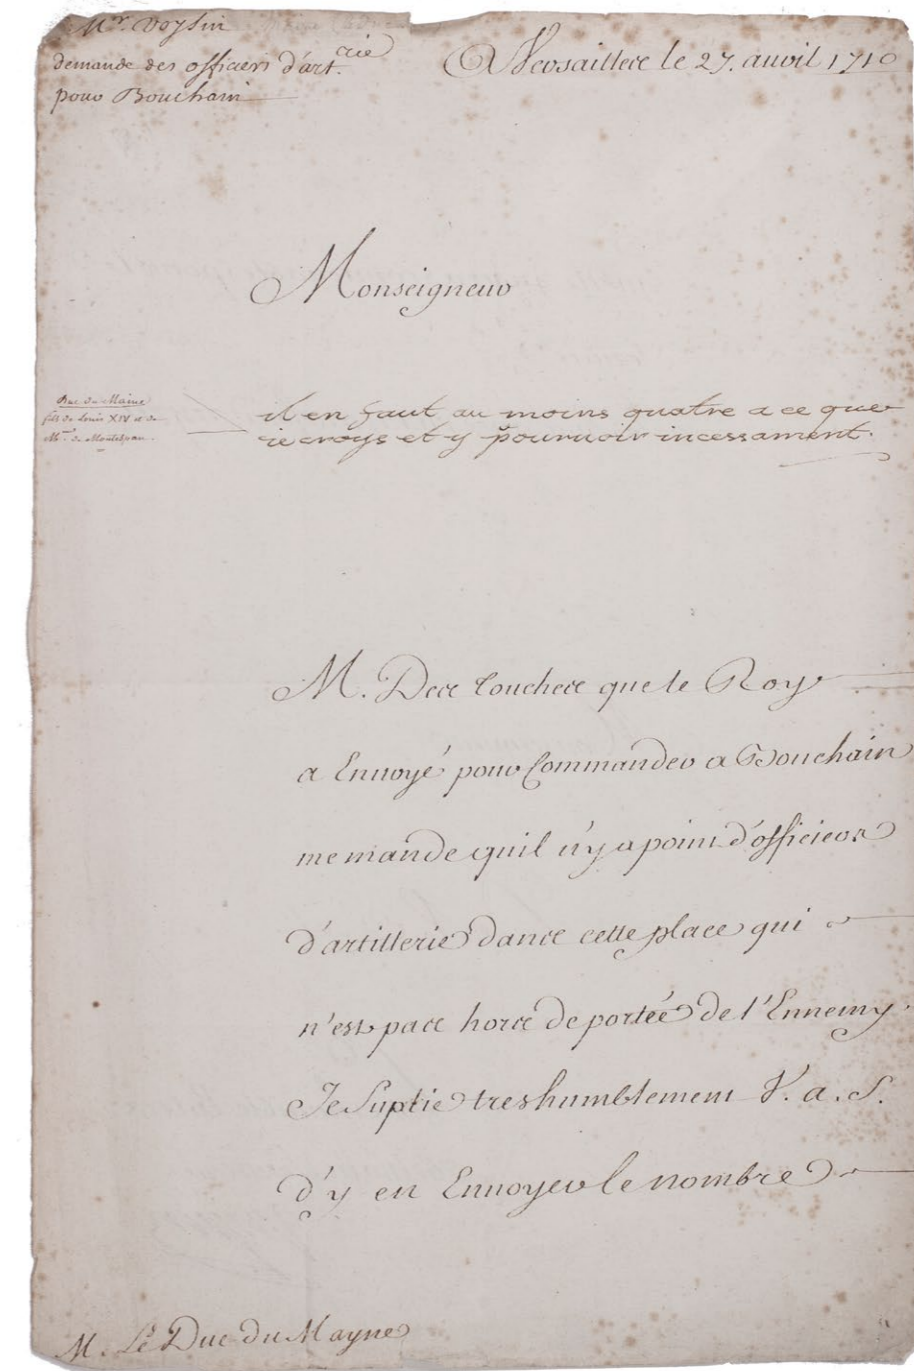 Mr. Voysin
demande des officiers d'art.rie
pour Bouchain
A Versailles le 27. avril 1710
Monseigneur
Duc du Maine
fils de Louis XIV et de
Me. de Montespan.
il en faut au moins quatre a ce que
ie croys et y pourvoir incessament.
M. Des Touches que le Roy
a Envoyé pour Commander a Bouchain
me mande quil n'y a point d'officiers
d'artillerie dans cette place qui
n'est pas hors de portée de l'Ennemy.
Je Suplie tres humblement V. a. S.
d'y en Envoyer le nombre
M. Le Duc du Mayne